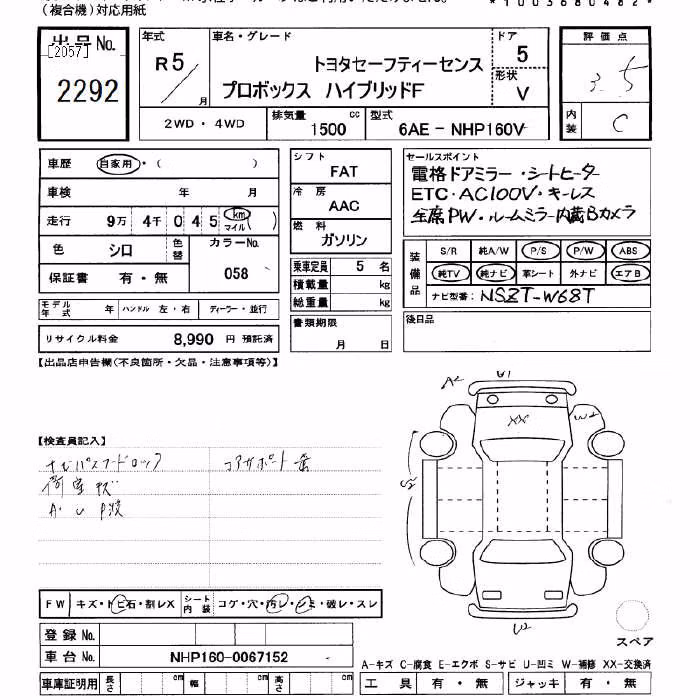 (複合機)対応用紙
*1003680482*
出品No.
[2057]
2292
年式
R5
月
車名・グレード
トヨタセーフティーセンス
プロボックス ハイブリッドF
ドア
5
形状
V
評価点
3.5
内装
C
2WD・4WD
排気量
1500
cc
型式
6AE-NHP160V
車歴 自家用・( )
車検 年 月
走行 9万 4千 045 km マイル )
色 シロ
色替
カラーNo.
058
保証書 有・無
モデル年式 年
ハンドル 左・右
ディーラー・並行
リサイクル料金 8,990 円 預託済
シフト
FAT
冷房
AAC
燃料
ガソリン
乗車定員 5 名
積載量 kg
総重量 kg
書類期限
月 日
セールスポイント
電格ドアミラー・シートヒータ
ETC・AC100V・キーレス
全席PW・ルームミラー内蔵Bカメラ
装備品
S/R 純A/W P/S P/W ABS
純TV 純ナビ 革シート 外ナビ エアB
ナビ型番: NSZT-W68T
後日品
【出品店申告欄(不良箇所・欠品・注意事項等)】
【検査員記入】
ナビパスワードロック
コアサポート歪
荷室キズ
A・U P波
A2
U1
XX
W2
S2
U2
スペア
FW キズ・トビ石・割レX
シート内装 コゲ・穴・汚レ・シミ・破レ・スレ
登録No.
車台No. NHP160-0067152
車庫証明用 長さ cm 幅 cm 高さ cm
A-キズ C-腐食 E-エクボ S-サビ U-凹ミ W-補修 XX-交換済
工具 有・無 ジャッキ 有・無